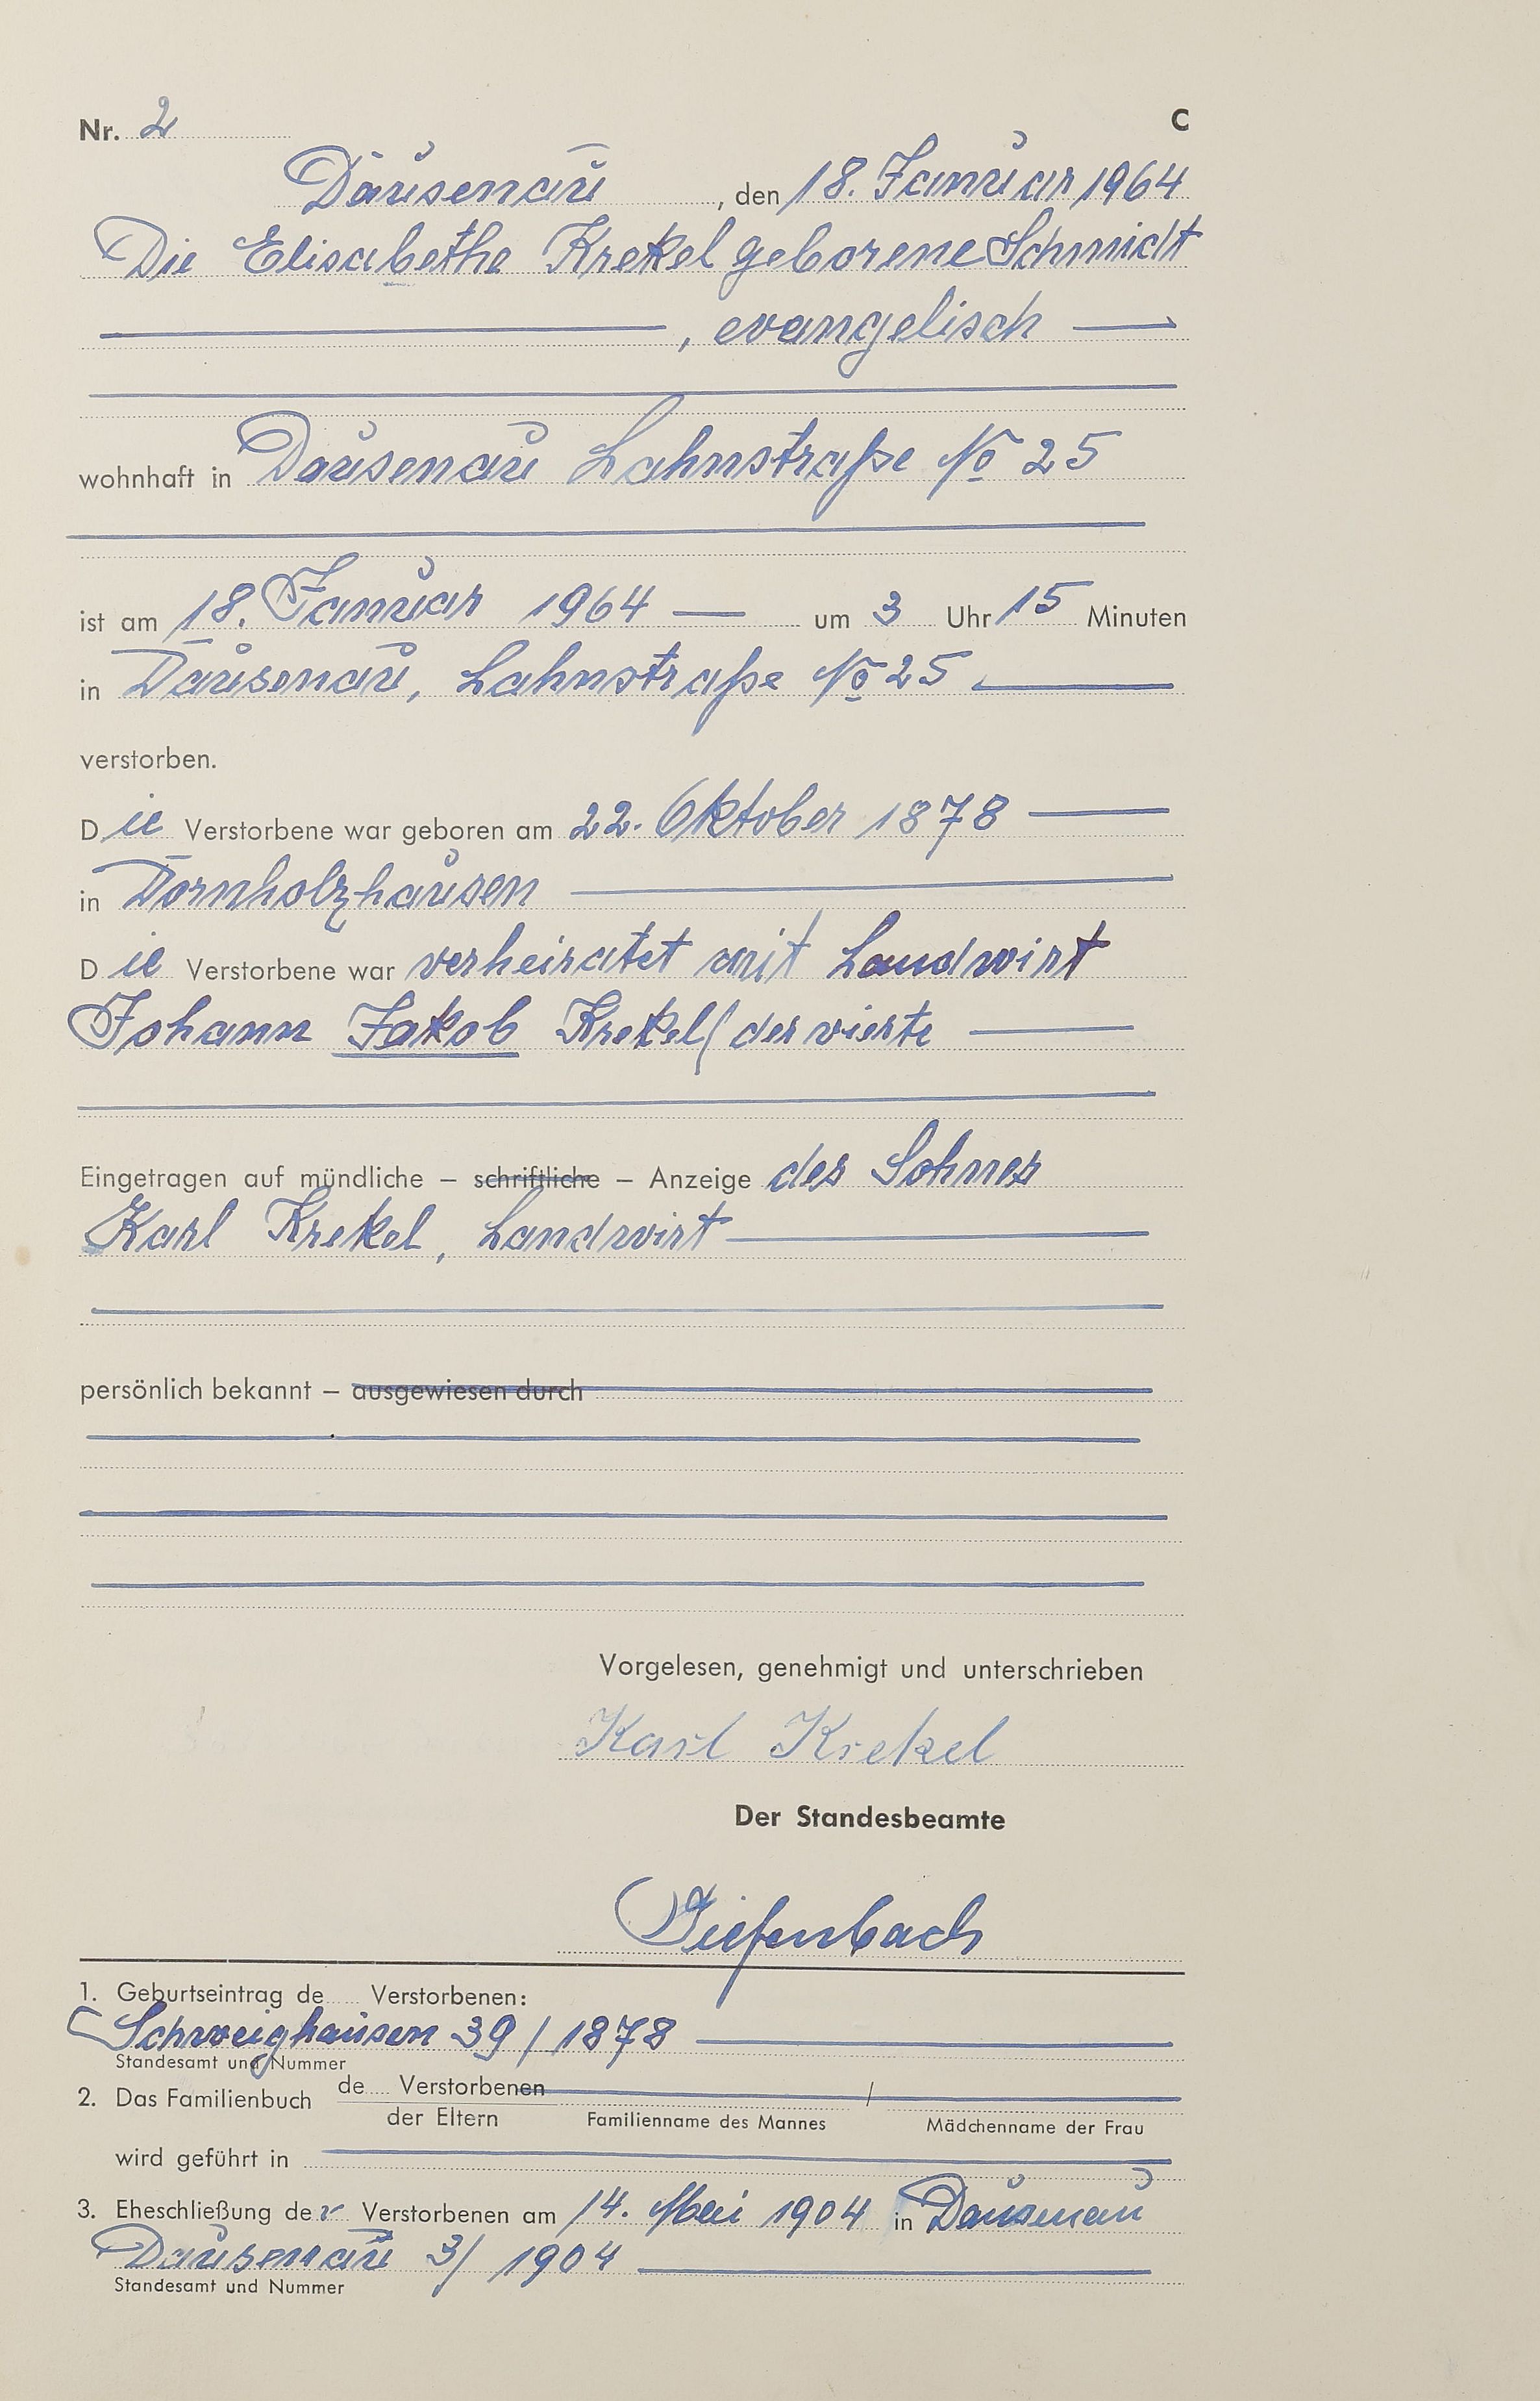 Nr. 2
C
Dausenau, den 18. Januar 1964
Die Elisabethe Krekel geborene Schmidt
, evangelisch
wohnhaft in Dausenau Lahnstraße No 25
ist am 18. Januar 1964 um 3 Uhr 15 Minuten
in Dausenau, Lahnstraße No 25
verstorben.
Die Verstorbene war geboren am 22. Oktober 1878
in Dornholzhausen
Die Verstorbene war verheiratet mit Landwirt
Johann Jakob Krekel / der vierte
Eingetragen auf mündliche – schriftliche – Anzeige des Sohnes
Karl Krekel, Landwirt
persönlich bekannt – ausgewiesen durch
Vorgelesen, genehmigt und unterschrieben
Karl Krekel
Der Standesbeamte
Tiefenbach
1. Geburtseintrag de Verstorbenen:
Schweighausen 39 / 1878
Standesamt und Nummer
2. Das Familienbuch de Verstorbenen /
der Eltern Familienname des Mannes Mädchenname der Frau
wird geführt in
3. Eheschließung der Verstorbenen am 14. Mai 1904 in Dausenau
Dausenau 3 / 1904
Standesamt und Nummer